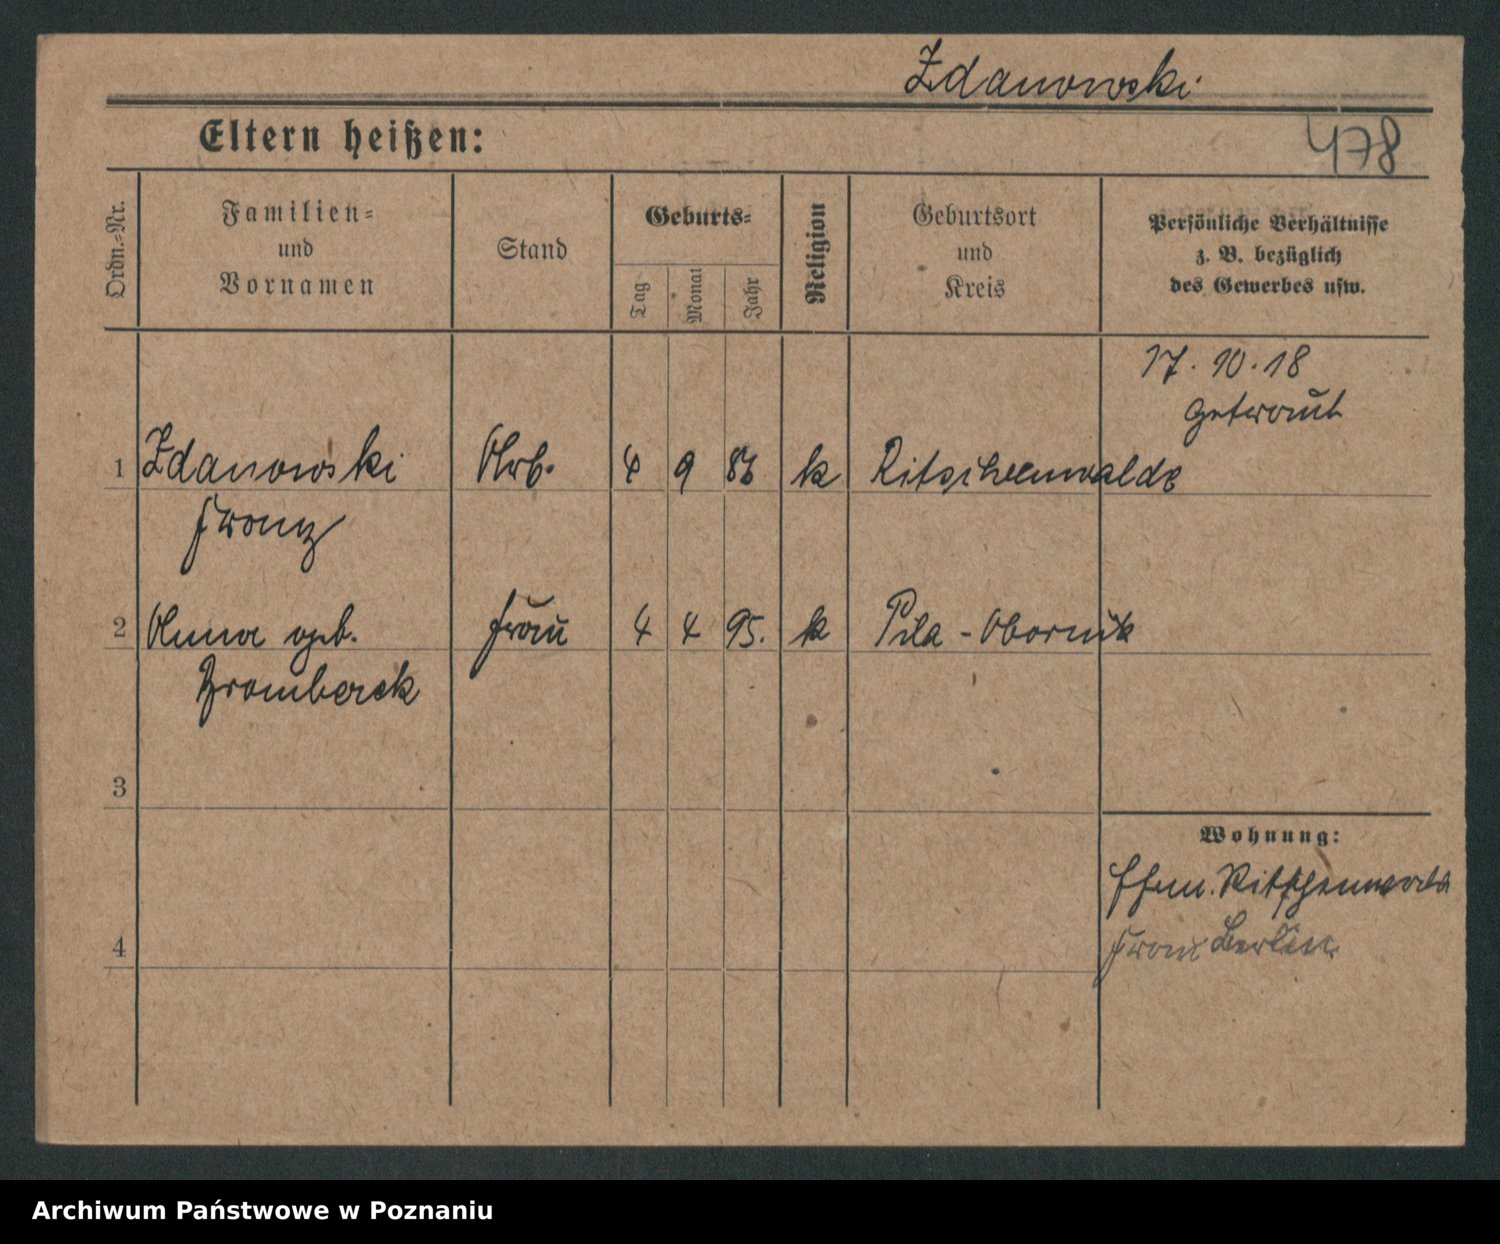 Zdanowski
Eltern heißen:
478
Ordn.-Nr.
Familien-
und
Vornamen
Stand
Geburts-
Tag
Monat
Jahr
Religion
Geburtsort
und
Kreis
Persönliche Verhältnisse
z. B. bezüglich
des Gewerbes usw.
17. 10. 18
getraut
1 Zdanowski Arb. 4 9 86 k Ritschenwalde
Franz
2 Anna geb. Frau 4 4 95. k Pila - Obornik
3
4
Wohnung:
Ehem. Ritschenwalde
Frau Berlin
Archiwum Państwowe w Poznaniu